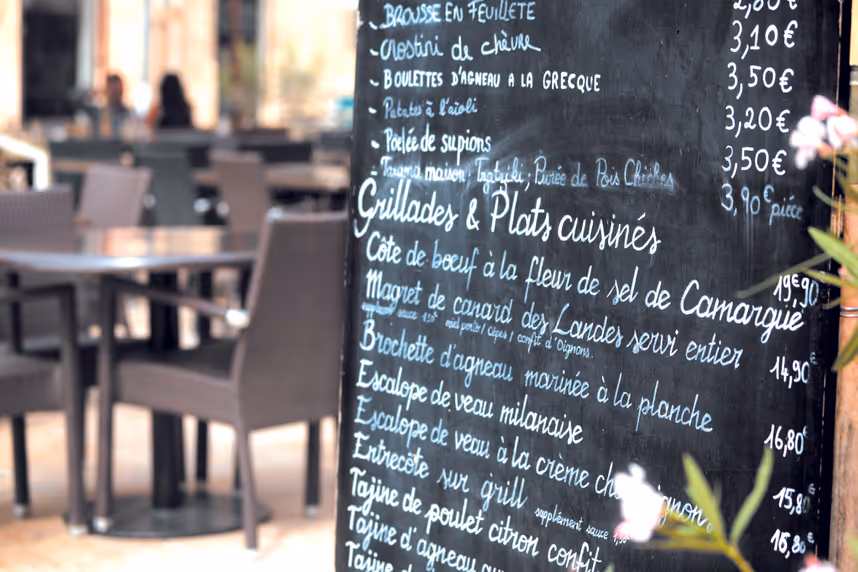 - BROUSSE EN FEUILLETE
- Crostini de chèvre 3,10€
- BOULETTES D'AGNEAU A LA GRECQUE 3,50€
- Patates à l'aïoli 3,20€
- Poêlée de supions 3,50€
- Tarama maison; Tzatziki; Purée de Pois Chiches 3,90€ pièce
Grillades & Plats cuisinés
Côte de boeuf à la fleur de sel de Camargue 19€90
Magret de canard des Landes servi entier 14,90€
supplément sauce miel porto / Cèpes / confit d'Oignons.
Brochette d'agneau marinée à la planche 16,80€
Escalope de veau milanaise 15,8
Escalope de veau à la crème 16,80€
Entrecôte sur grill supplément sauce
Tajine de poulet citron confit
Tajine d'agneau
Tajine